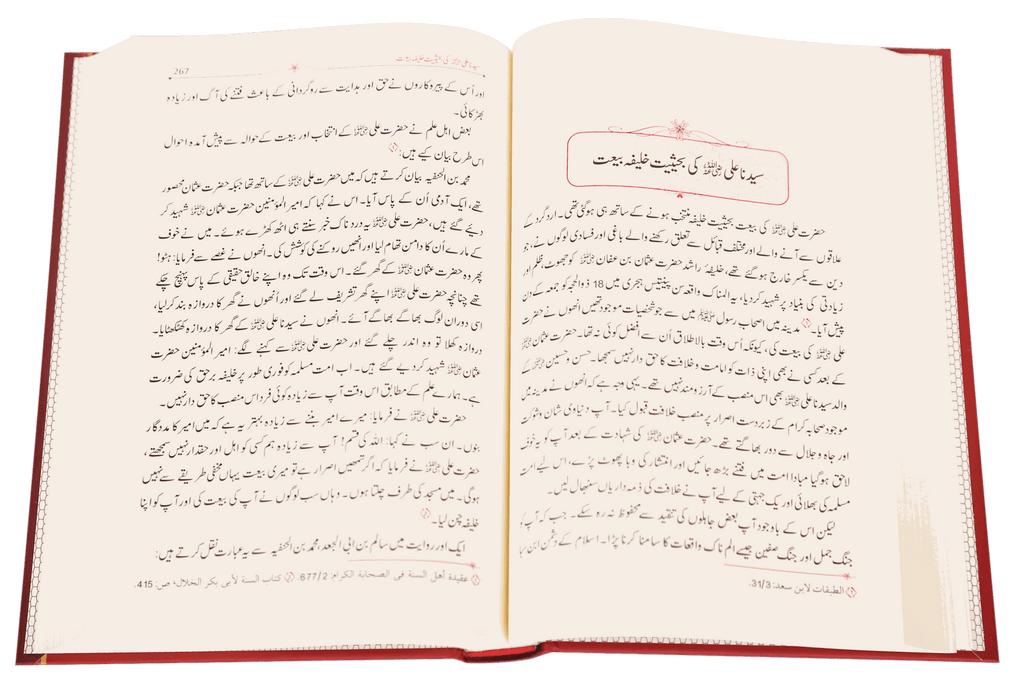 سیدنا علی رضی اللہ عنہ کی بحیثیت خلیفہ بیعت
حضرت علی رضی اللہ عنہ کی بیعت بحیثیت خلیفہ منتخب ہونے کے ساتھ ہی ہو گئی تھی۔ ارد گرد کے
علاقوں سے آنے والے اور مختلف قبائل سے تعلق رکھنے والے باغی اور فسادی لوگوں نے، جو
دین سے یکسر خارج ہو گئے تھے، خلیفۂ راشد حضرت عثمان بن عفان رضی اللہ عنہ کو جھوٹ، ظلم اور
زیادتی کی بنیاد پر شہید کر دیا، یہ المناک واقعہ سن پینتیس ہجری میں 18 ذوالحجہ کو جمعہ کے دن
پیش آیا۔ مدینہ میں اصحاب رسول صلی اللہ علیہ وسلم میں سے جو شخصیات موجود تھیں انھوں نے حضرت
علی رضی اللہ عنہ کی بیعت کی، کیونکہ اُس وقت بالاطلاق اُن سے افضل کوئی نہ تھا۔ حضرت عثمان رضی اللہ عنہ
کے بعد کسی نے بھی اپنی ذات کو امامت و خلافت کا حق دار نہیں سمجھا۔ حسن و حسین رضی اللہ عنہما کے
والد سیدنا علی رضی اللہ عنہ بھی اس منصب کے آرزو مند نہیں تھے۔ یہی وجہ ہے کہ انھوں نے مدینہ میں
موجود صحابہ کرام کے زبردست اصرار پر منصب خلافت قبول کیا۔ آپ دنیاوی شان و شوکت
اور جاہ و جلال سے دور بھاگتے تھے۔ حضرت عثمان رضی اللہ عنہ کی شہادت کے بعد آپ کو یہ خوف
لاحق ہو گیا مبادا امت میں فتنے بڑھ جائیں اور انتشار کی وبا پھوٹ پڑے، اس لیے امت
مسلمہ کی بھلائی اور یک جہتی کے لیے آپ نے خلافت کی ذمہ داریاں سنبھال لیں۔
لیکن اس کے باوجود آپ بعض جاہلوں کی تنقید سے محفوظ نہ رہ سکے۔ جب کہ آپ کو
جنگ جمل اور جنگ صفین جیسے الم ناک واقعات کا سامنا کرنا پڑا۔ اسلام کے دشمن ابن سبا
① الطبقات لابن سعد: 31/3.
سیدنا علی رضی اللہ عنہ کی بحیثیت خلیفہ بیعت 267
اور اُس کے پیروکاروں نے حق اور ہدایت سے روگردانی کے باعث فتنے کی آگ اور زیادہ
بھڑکائی۔
بعض اہل علم نے حضرت علی رضی اللہ عنہ کے انتخاب اور بیعت کے حوالہ سے پیش آمدہ احوال
اس طرح بیان کیے ہیں: ①
محمد بن الحنفیہ بیان کرتے ہیں کہ میں حضرت علی رضی اللہ عنہ کے ساتھ تھا جبکہ حضرت عثمان محصور
تھے، ایک آدمی اُن کے پاس آیا۔ اس نے کہا کہ امیر المؤمنین حضرت عثمان رضی اللہ عنہ شہید کر
دیے گئے ہیں، حضرت علی رضی اللہ عنہ یہ درد ناک خبر سنتے ہی اٹھ کھڑے ہوئے۔ میں نے خوف
کے مارے اُن کا دامن تھام لیا اور انھیں روکنے کی کوشش کی۔ انھوں نے غصے سے فرمایا: ہٹو!
پھر وہ حضرت عثمان رضی اللہ عنہ کے گھر گئے۔ اس وقت تک وہ اپنے خالق حقیقی کے پاس پہنچ چکے
تھے چنانچہ حضرت علی رضی اللہ عنہ اپنے گھر تشریف لے گئے اور اُنھوں نے گھر کا دروازہ بند کر لیا،
اسی دوران لوگ بھاگے بھاگے آئے۔ انھوں نے سیدنا علی رضی اللہ عنہ کے گھر کا دروازہ کھٹکھٹایا۔
دروازہ کھلا تو وہ اندر چلے گئے اور حضرت علی رضی اللہ عنہ سے کہنے لگے: امیر المؤمنین حضرت
عثمان رضی اللہ عنہ شہید کر دیے گئے ہیں۔ اب امت مسلمہ کو فوری طور پر خلیفہ برحق کی ضرورت
ہے۔ ہمارے علم کے مطابق اس وقت آپ سے زیادہ کوئی فرد اس منصب کا حق دار نہیں۔
حضرت علی رضی اللہ عنہ نے فرمایا: میرے امیر بننے سے زیادہ بہتر یہ ہے کہ میں امیر کا مددگار
بنوں۔ ان سب نے کہا: اللہ کی قسم! آپ سے زیادہ ہم کسی کو اہل اور حقدار نہیں سمجھتے،
حضرت علی رضی اللہ عنہ نے فرمایا کہ اگر تمھیں اصرار ہے تو میری بیعت یہاں مخفی طریقے سے نہیں
ہو گی۔ میں مسجد کی طرف چلتا ہوں۔ وہاں سب لوگوں نے آپ کی بیعت کی اور آپ کو اپنا
خلیفہ چن لیا۔ ②
ایک اور روایت میں سالم بن ابی الجعد، محمد بن الحنفیہ سے یہ عبارت نقل کرتے ہیں:
① عقيدة أهل السنة في الصحابة الكرام: 677/2. ② كتاب السنة لأبي بكر الخلال، ص: 415.